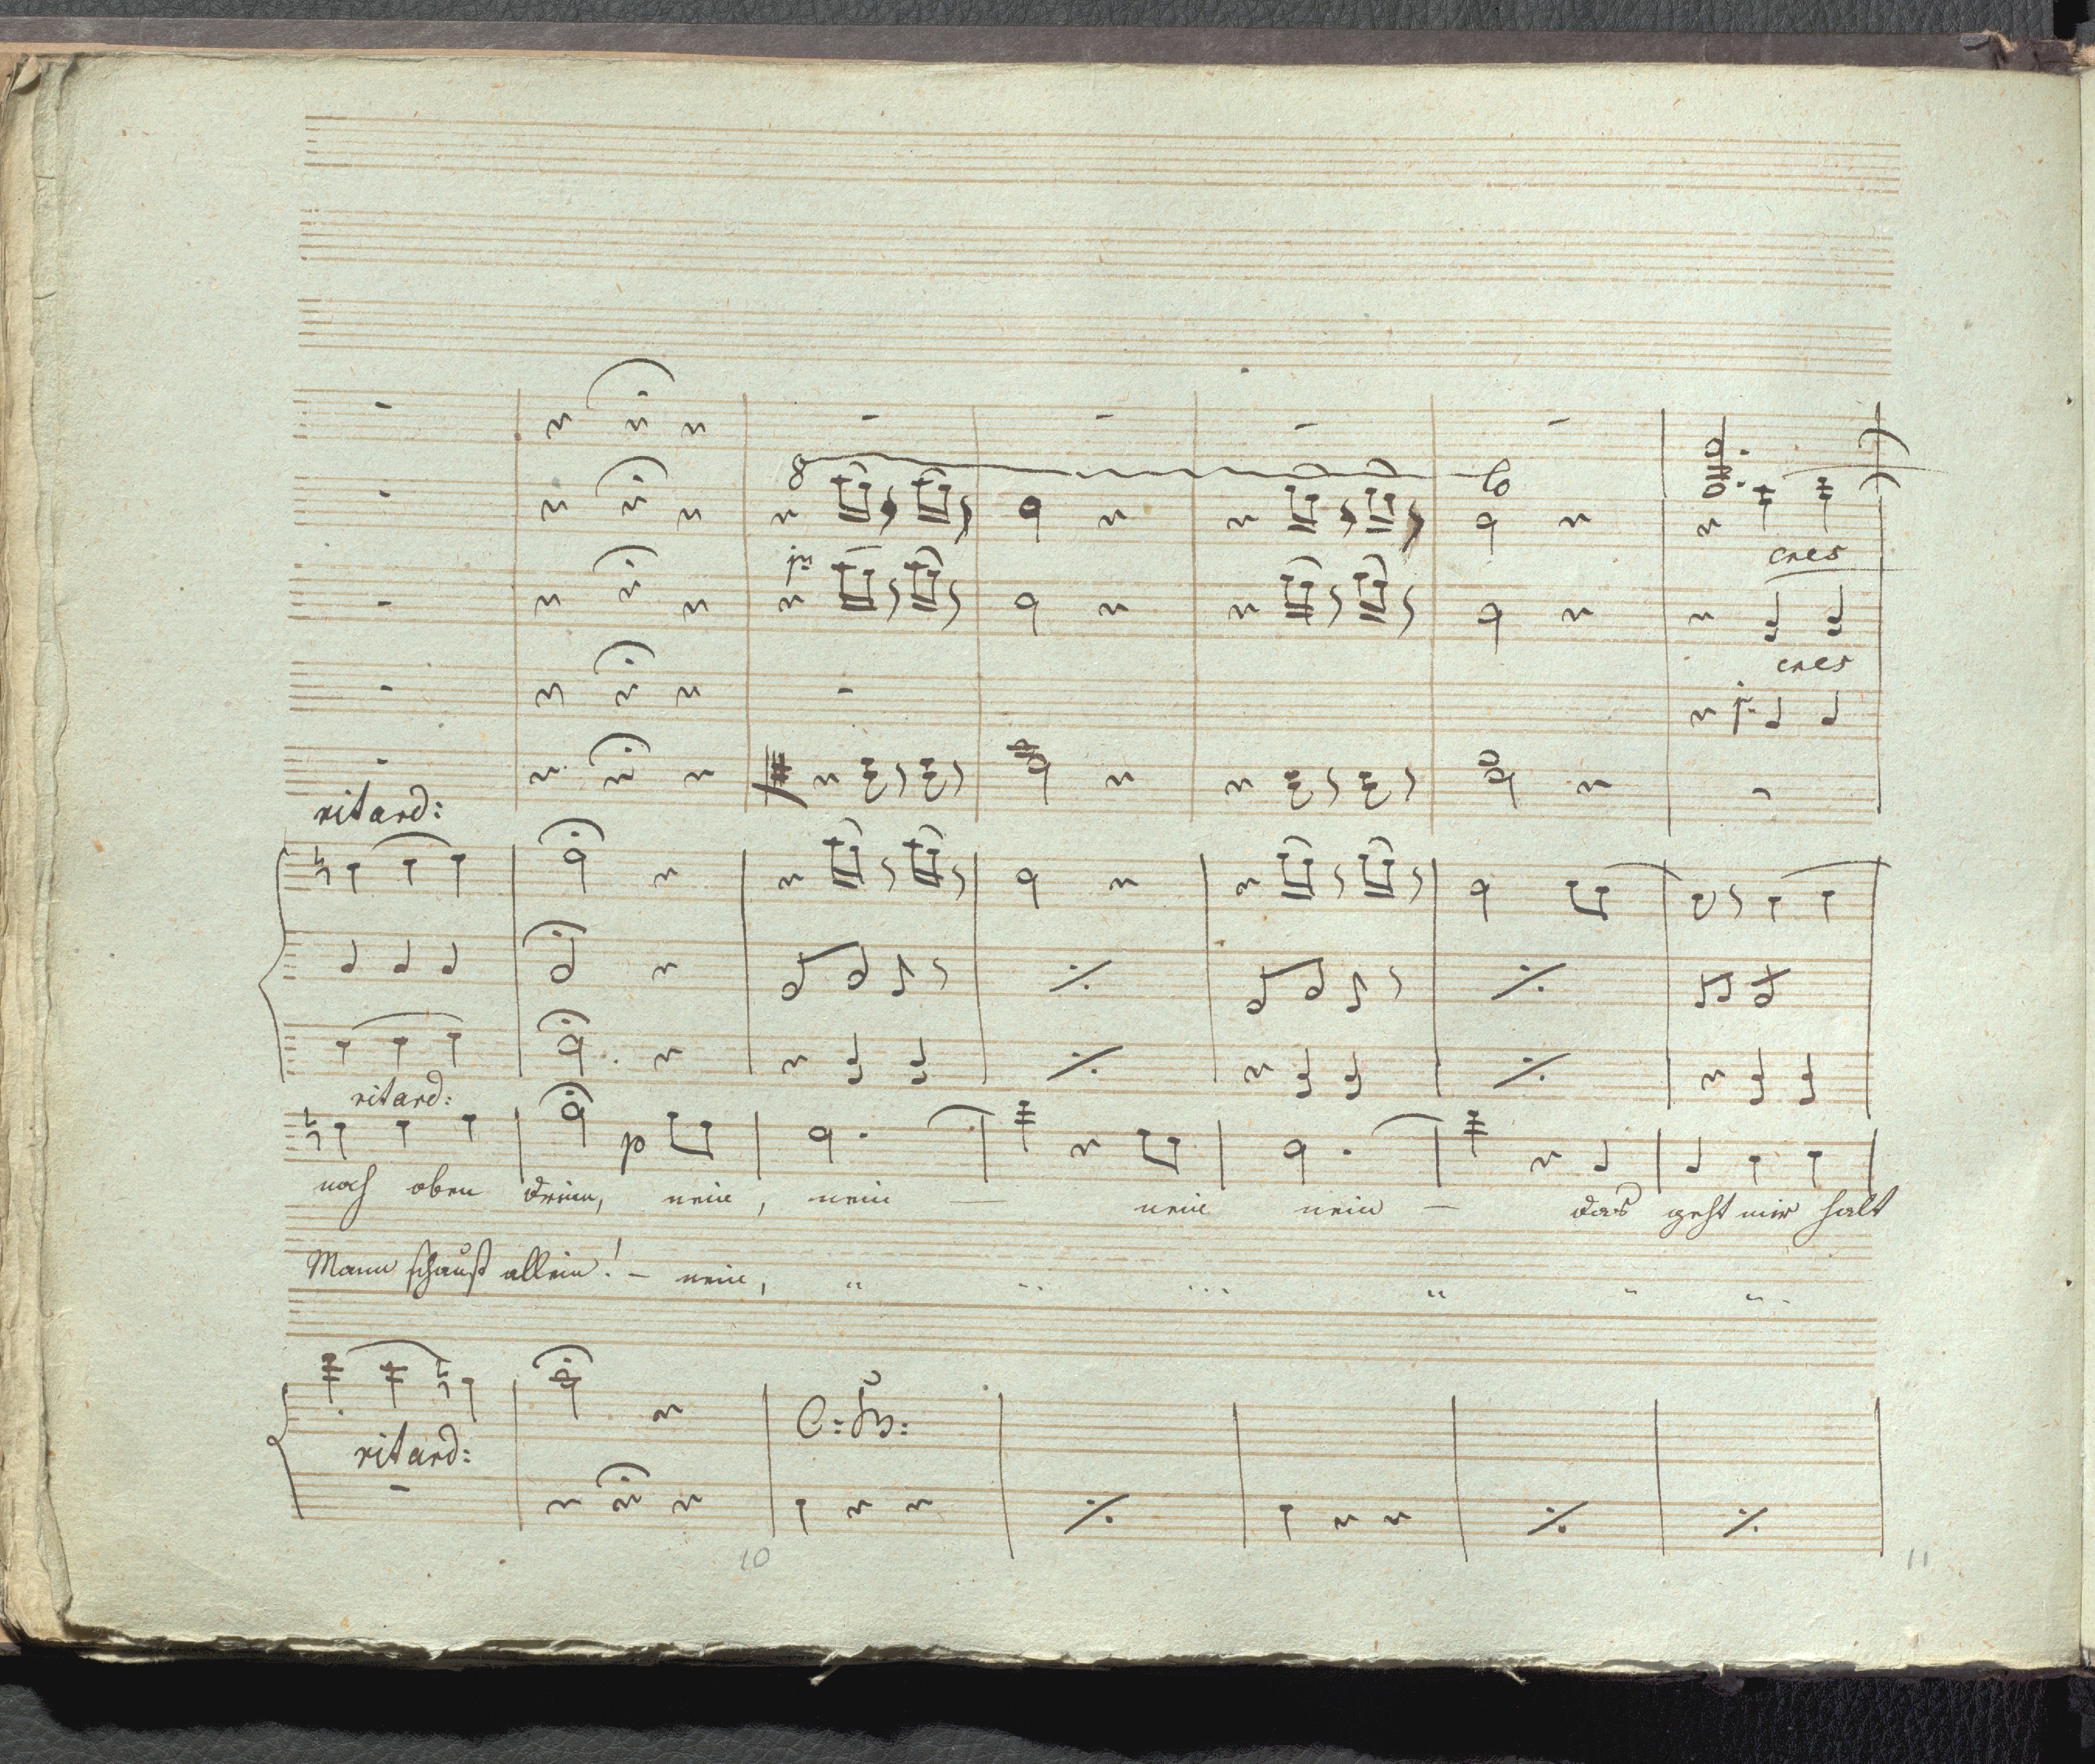 8
lo
cres
cres
ritard:
ritard:
p
noch oben drein, nein, nein — nein nein — das geht mir halt
Mann schaust allein! – nein, " " " " " "
C: B:
ritard:
10
11